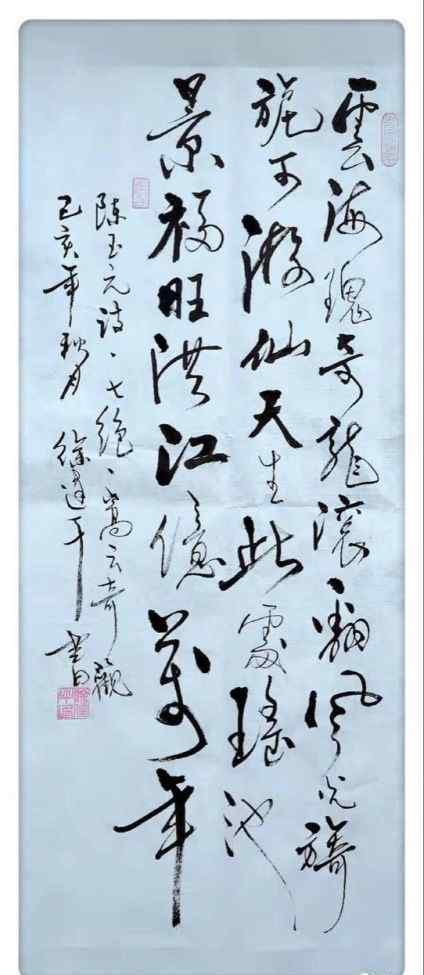 雲海瑰奇龍滾翻風光旖
旎可游仙天生此處瑤池
景福旺洪江億萬年
陳玉元詩、七絕、嵩云奇觀
己亥年秋月 徐達平書